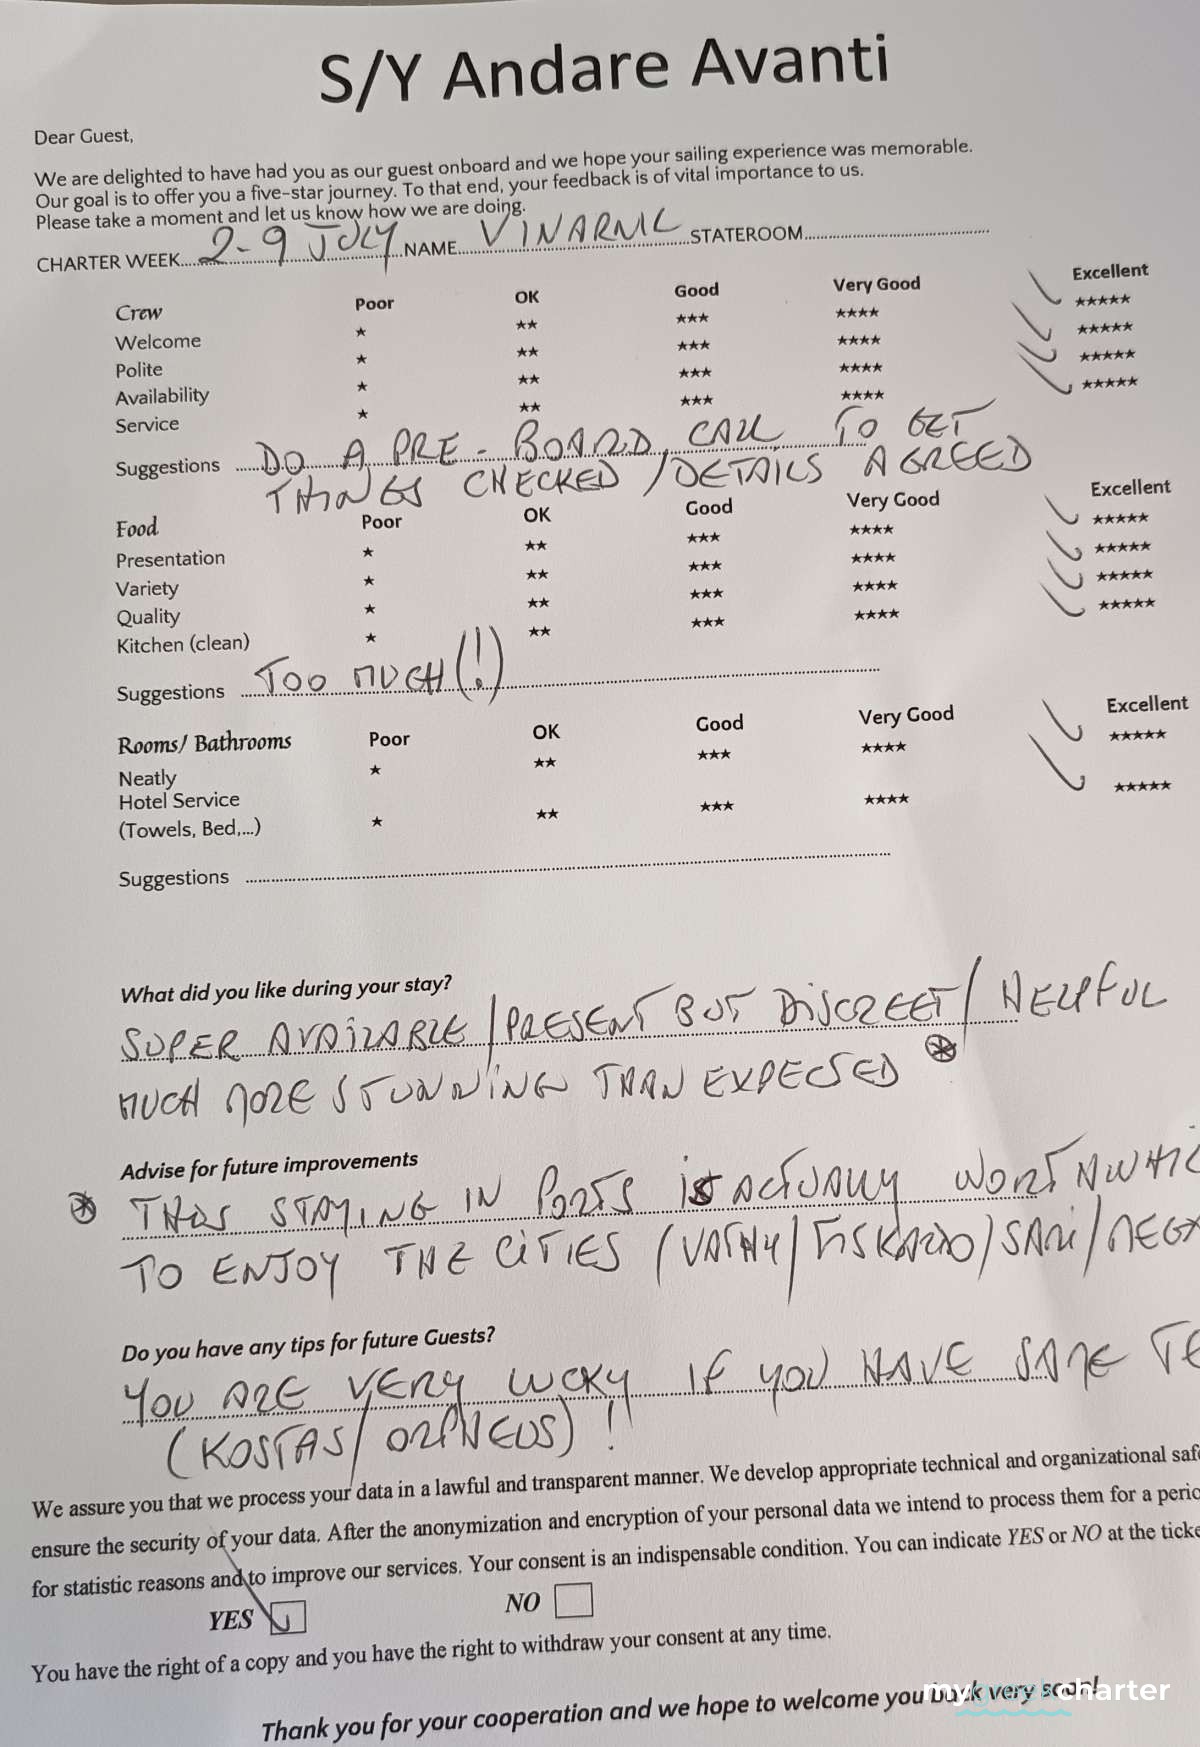 S/Y Andare Avanti
Dear Guest,
We are delighted to have had you as our guest onboard and we hope your sailing experience was memorable.
Our goal is to offer you a five-star journey. To that end, your feedback is of vital importance to us.
Please take a moment and let us know how we are doing.
CHARTER WEEK 2-9 JULY NAME VINARNIC STATEROOM
Crew Poor OK Good Very Good Excellent
Welcome ★ ★★ ★★★ ★★★★ ★★★★★
Polite ★ ★★ ★★★ ★★★★ ★★★★★
Availability ★ ★★ ★★★ ★★★★ ★★★★★
Service ★ ★★ ★★★ ★★★★ ★★★★★
Suggestions DO A PRE-BOARD CALL TO GET
THINGS CHECKED / DETAILS AGREED
Food Poor OK Good Very Good Excellent
Presentation ★ ★★ ★★★ ★★★★ ★★★★★
Variety ★ ★★ ★★★ ★★★★ ★★★★★
Quality ★ ★★ ★★★ ★★★★ ★★★★★
Kitchen (clean) ★ ★★ ★★★ ★★★★ ★★★★★
Suggestions TOO MUCH (!)
Rooms/ Bathrooms Poor OK Good Very Good Excellent
Neatly ★ ★★ ★★★ ★★★★ ★★★★★
Hotel Service
(Towels, Bed,...) ★ ★★ ★★★ ★★★★ ★★★★★
Suggestions
What did you like during your stay?
SUPER AVAILABLE / PRESENT BUT DISCREET / HELPFUL
MUCH MORE STUNNING THAN EXPECTED
Advise for future improvements
STAYING IN PORTS IS ACTUALLY WORTHWHIL
TO ENJOY THE CITIES (VATHY / FISKARDO / SAMI / MEGA
Do you have any tips for future Guests?
YOU ARE VERY LUCKY IF YOU HAVE SAME TE
(KOSTAS / ORPHEUS) !
We assure you that we process your data in a lawful and transparent manner. We develop appropriate technical and organizational safe
ensure the security of your data. After the anonymization and encryption of your personal data we intend to process them for a perio
for statistic reasons and to improve our services. Your consent is an indispensable condition. You can indicate YES or NO at the ticke
YES NO
You have the right of a copy and you have the right to withdraw your consent at any time.
Thank you for your cooperation and we hope to welcome you back very soon!
mygreekcharter